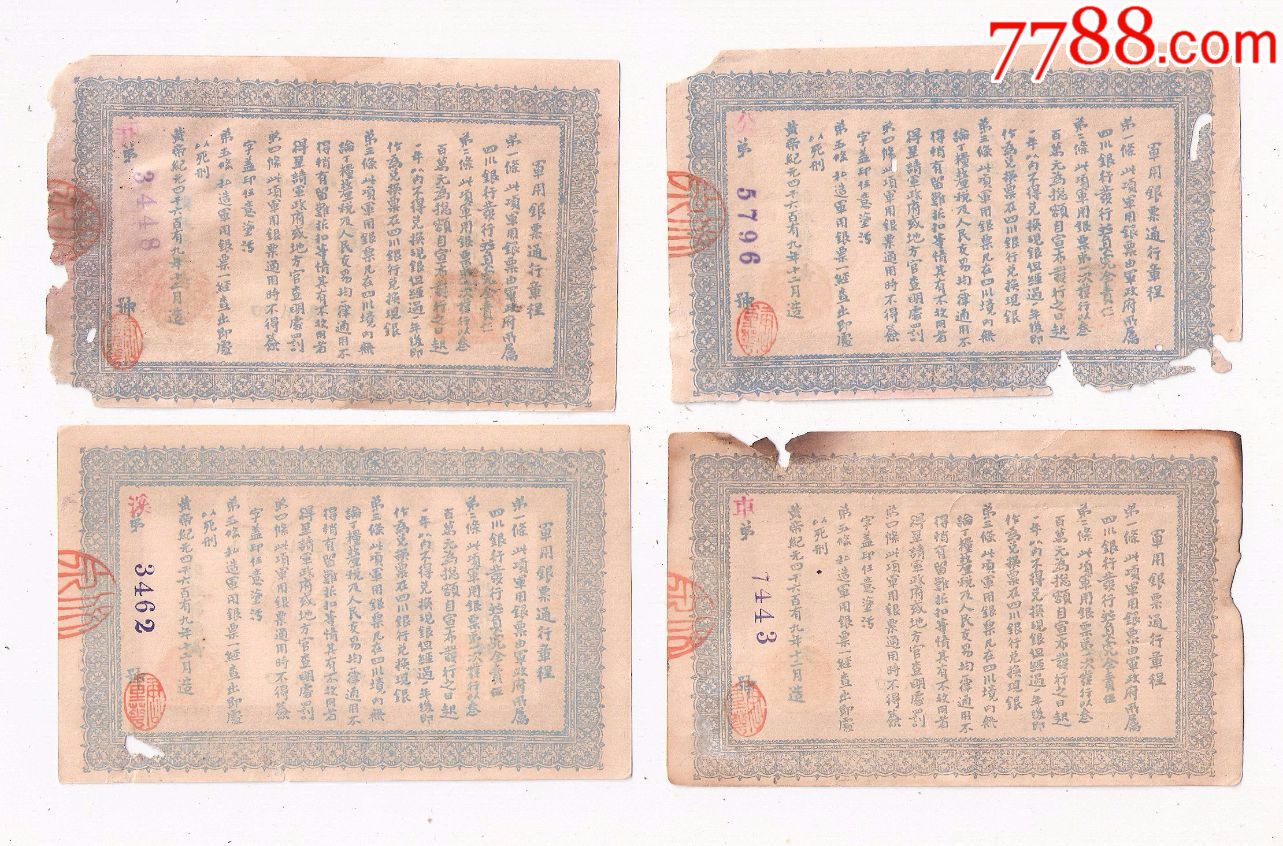 7788.com
軍用銀票通行章程
第一條此項軍用銀票由軍政府所屬
四川銀行發行擔負完全責任
第二條此項軍用銀票第一次發行以叁
百萬元為總額自宣布發行之日起
一年以內不得兌換現銀但經過一年後即
作為兌換票在四川銀行兌換現銀
第三條此項軍用銀票凡在四川境內無
論丁糧釐稅及人民交易均一律通用不
得稍有留難折扣等情其有不收用者
得呈請軍政府或地方官查明處罰
第四條此項軍用銀票通用時不得簽
字蓋印任意塗污
第五條私造軍用銀票一經查出即處
以死刑
黃帝紀元四千六百有九年十二月造
第 3448 號
軍用銀票通行章程
第一條此項軍用銀票由軍政府所屬
四川銀行發行擔負完全責任
第二條此項軍用銀票第一次發行以叁
百萬元為總額自宣布發行之日起
一年以內不得兌換現銀但經過一年後即
作為兌換票在四川銀行兌換現銀
第三條此項軍用銀票凡在四川境內無
論丁糧釐稅及人民交易均一律通用不
得稍有留難折扣等情其有不收用者
得呈請軍政府或地方官查明處罰
第四條此項軍用銀票通用時不得簽
字蓋印任意塗污
第五條私造軍用銀票一經查出即處
以死刑
黃帝紀元四千六百有九年十二月造
第 5796 號
軍用銀票通行章程
第一條此項軍用銀票由軍政府所屬
四川銀行發行擔負完全責任
第二條此項軍用銀票第一次發行以叁
百萬元為總額自宣布發行之日起
一年以內不得兌換現銀但經過一年後即
作為兌換票在四川銀行兌換現銀
第三條此項軍用銀票凡在四川境內無
論丁糧釐稅及人民交易均一律通用不
得稍有留難折扣等情其有不收用者
得呈請軍政府或地方官查明處罰
第四條此項軍用銀票通用時不得簽
字蓋印任意塗污
第五條私造軍用銀票一經查出即處
以死刑
黃帝紀元四千六百有九年十二月造
第 3462 號
軍用銀票通行章程
第一條此項軍用銀票由軍政府所屬
四川銀行發行擔負完全責任
第二條此項軍用銀票第一次發行以叁
百萬元為總額自宣布發行之日起
一年以內不得兌換現銀但經過一年後即
作為兌換票在四川銀行兌換現銀
第三條此項軍用銀票凡在四川境內無
論丁糧釐稅及人民交易均一律通用不
得稍有留難折扣等情其有不收用者
得呈請軍政府或地方官查明處罰
第四條此項軍用銀票通用時不得簽
字蓋印任意塗污
第五條私造軍用銀票一經查出即處
以死刑
黃帝紀元四千六百有九年十二月造
第 7443 號